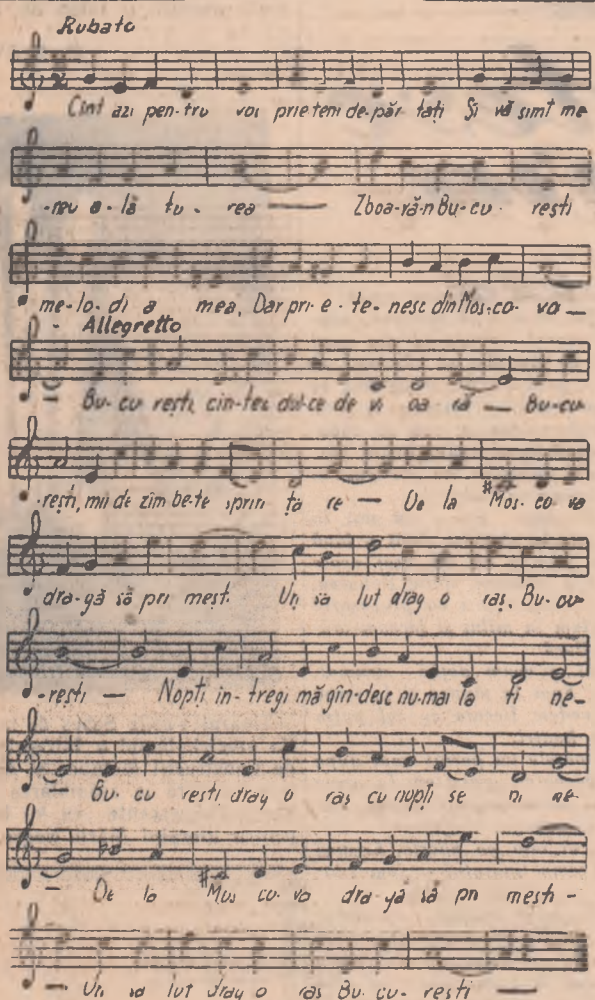 Rubato
Cînt azi pen-tru voi prieteni de-păr-tați Și vă simt me
-reu a-lă tu-rea — Zboa-ră-n Bu-cu-rești
me-lo-di a mea, Dar pri-e-te-nesc din Mos-co-va —
Allegretto
Bu-cu rești, cîn-tec dul-ce de vi oa-ră — Bu-cu-
-rești, mii de zîm be-te sprin ța re — De la Mos-co va
dra-gă să pri mești. Un sa lut drag o raș, Bu-cu-
-rești — Nopți în-tregi mă gîn-desc nu-mai la ti ne-
— Bu-cu resti drag o raș cu nopți se ni ne-
— De la Mos cu-va dra-gă să pri mesti -
— Un sa lut drag o raș Bu-cu-resti —